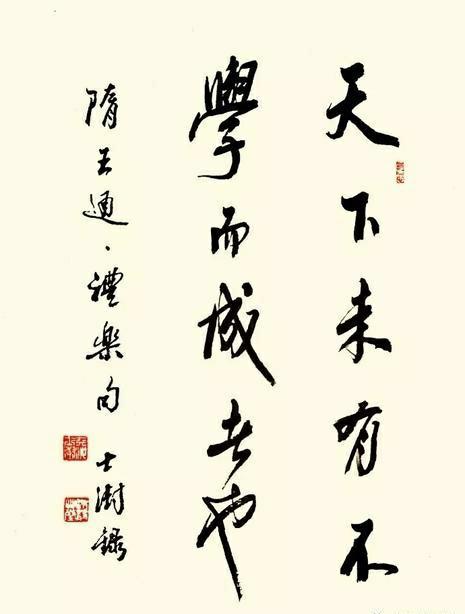 天下未有不
學而成者也
隋王通、禮樂句 士澍錄